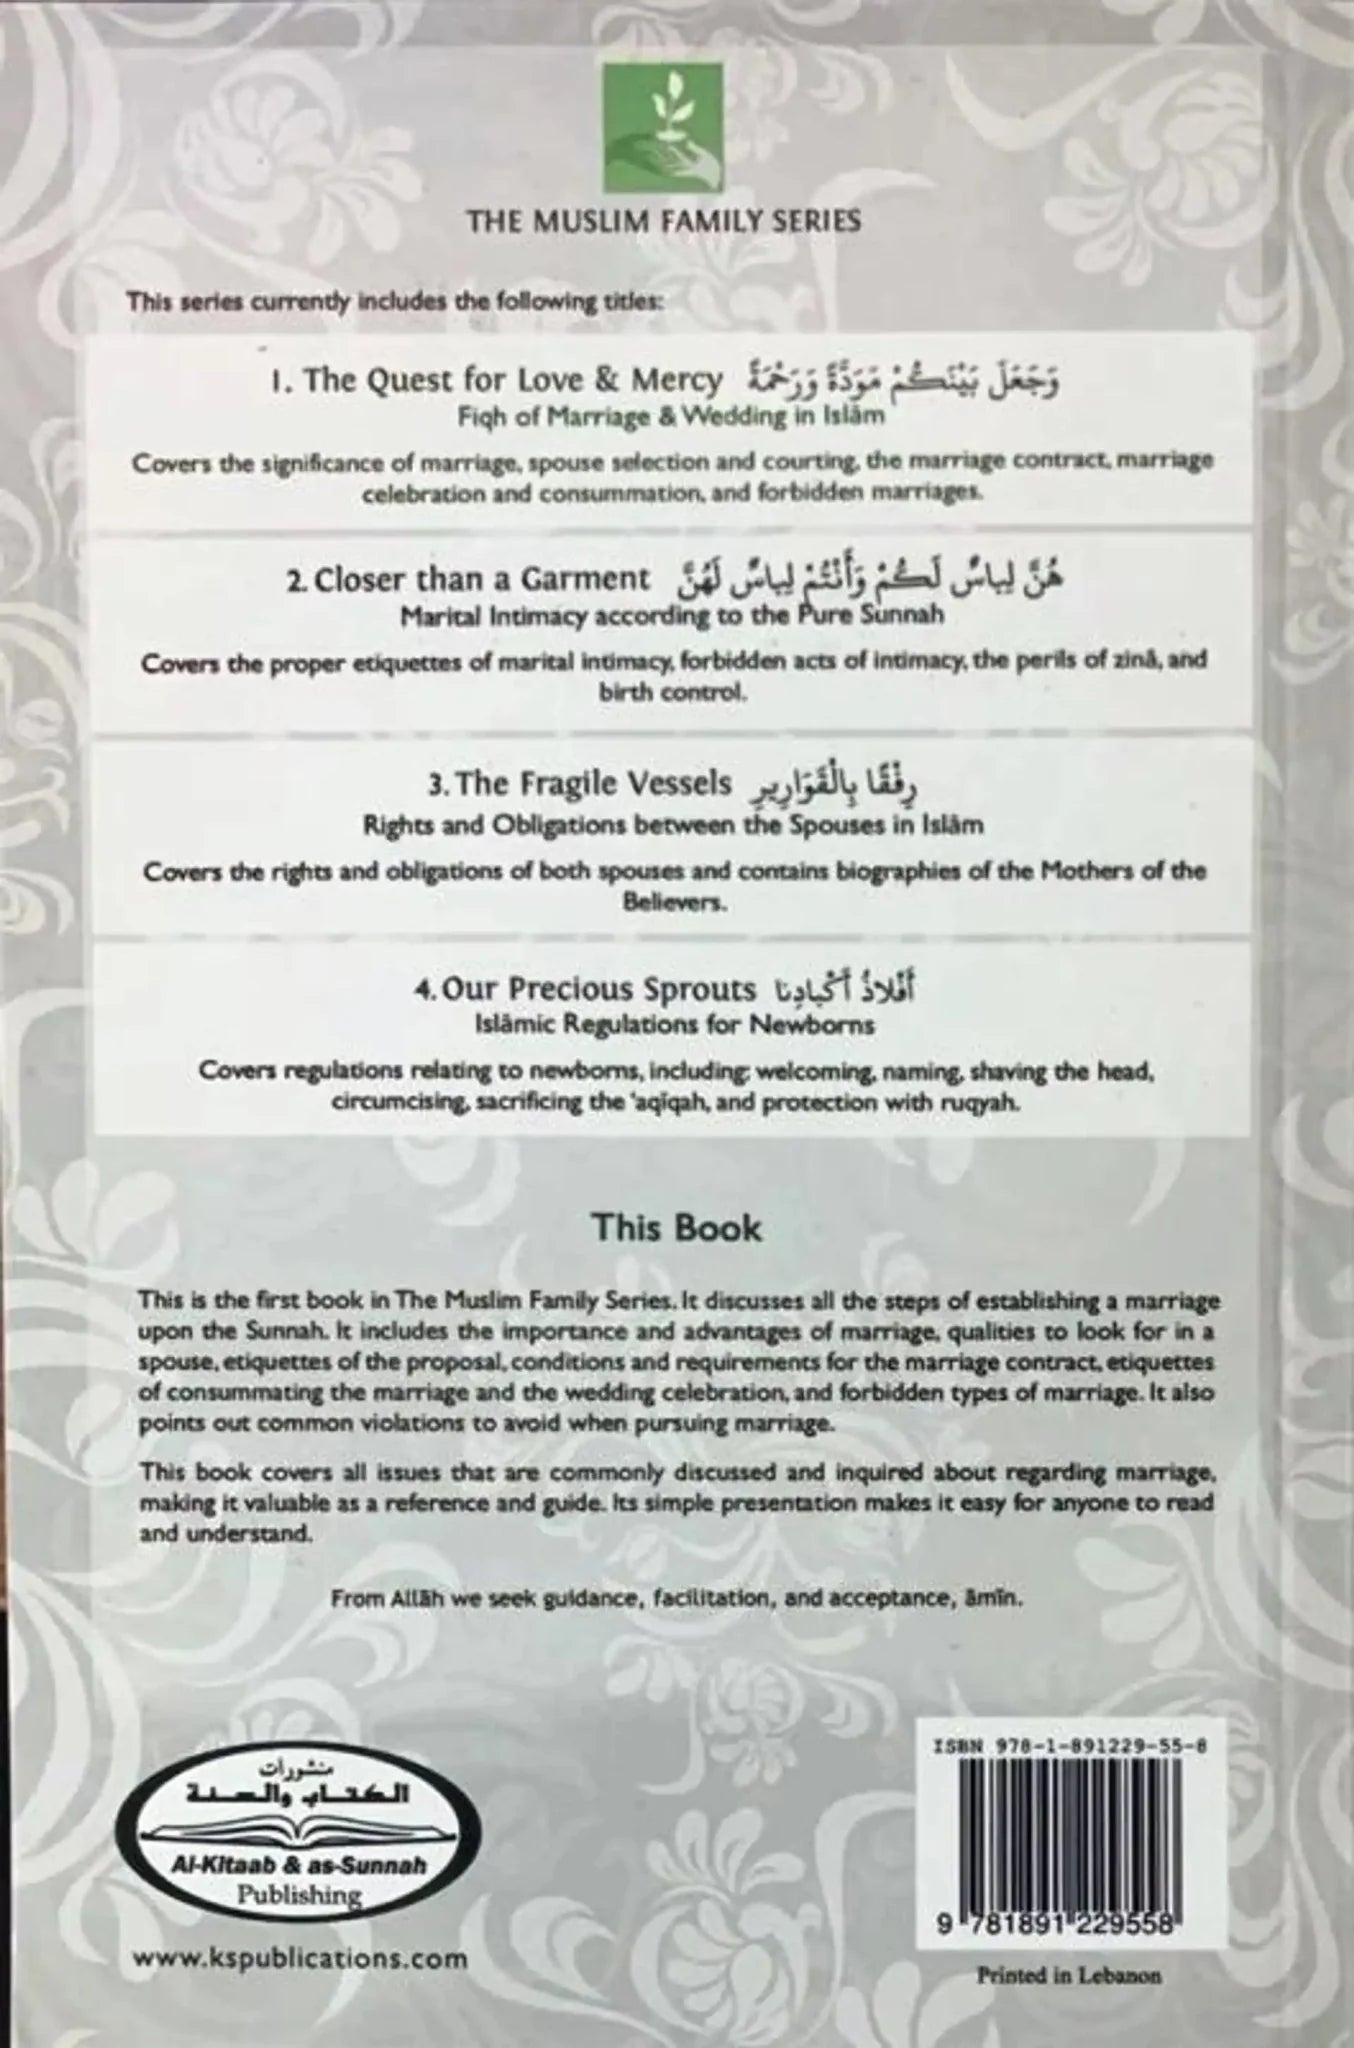 THE MUSLIM FAMILY SERIES
This series currently includes the following titles:
1. The Quest for Love & Mercy وَجَعَلَ بَيْنَكُمْ مَوَدَّةً وَرَحْمَةً
Fiqh of Marriage & Wedding in Islām
Covers the significance of marriage, spouse selection and courting, the marriage contract, marriage
celebration and consummation, and forbidden marriages.
2. Closer than a Garment هُنَّ لِبَاسٌ لَكُمْ وَأَنْتُمْ لِبَاسٌ لَهُنَّ
Marital Intimacy according to the Pure Sunnah
Covers the proper etiquettes of marital intimacy, forbidden acts of intimacy, the perils of zinā, and
birth control.
3. The Fragile Vessels رِفْقًا بِالْقَوَارِيرِ
Rights and Obligations between the Spouses in Islām
Covers the rights and obligations of both spouses and contains biographies of the Mothers of the
Believers.
4. Our Precious Sprouts أَفْلَاذُ أَكْبَادِنَا
Islāmic Regulations for Newborns
Covers regulations relating to newborns, including: welcoming, naming, shaving the head,
circumcising, sacrificing the 'aqīqah, and protection with ruqyah.
This Book
This is the first book in The Muslim Family Series. It discusses all the steps of establishing a marriage
upon the Sunnah. It includes the importance and advantages of marriage, qualities to look for in a
spouse, etiquettes of the proposal, conditions and requirements for the marriage contract, etiquettes
of consummating the marriage and the wedding celebration, and forbidden types of marriage. It also
points out common violations to avoid when pursuing marriage.
This book covers all issues that are commonly discussed and inquired about regarding marriage,
making it valuable as a reference and guide. Its simple presentation makes it easy for anyone to read
and understand.
From Allāh we seek guidance, facilitation, and acceptance, āmīn.
منشورات
الكتاب والسنة
Al-Kitaab & as-Sunnah
Publishing
www.kspublications.com
ISBN 978-1-891229-55-8
9 781891 229558
Printed in Lebanon